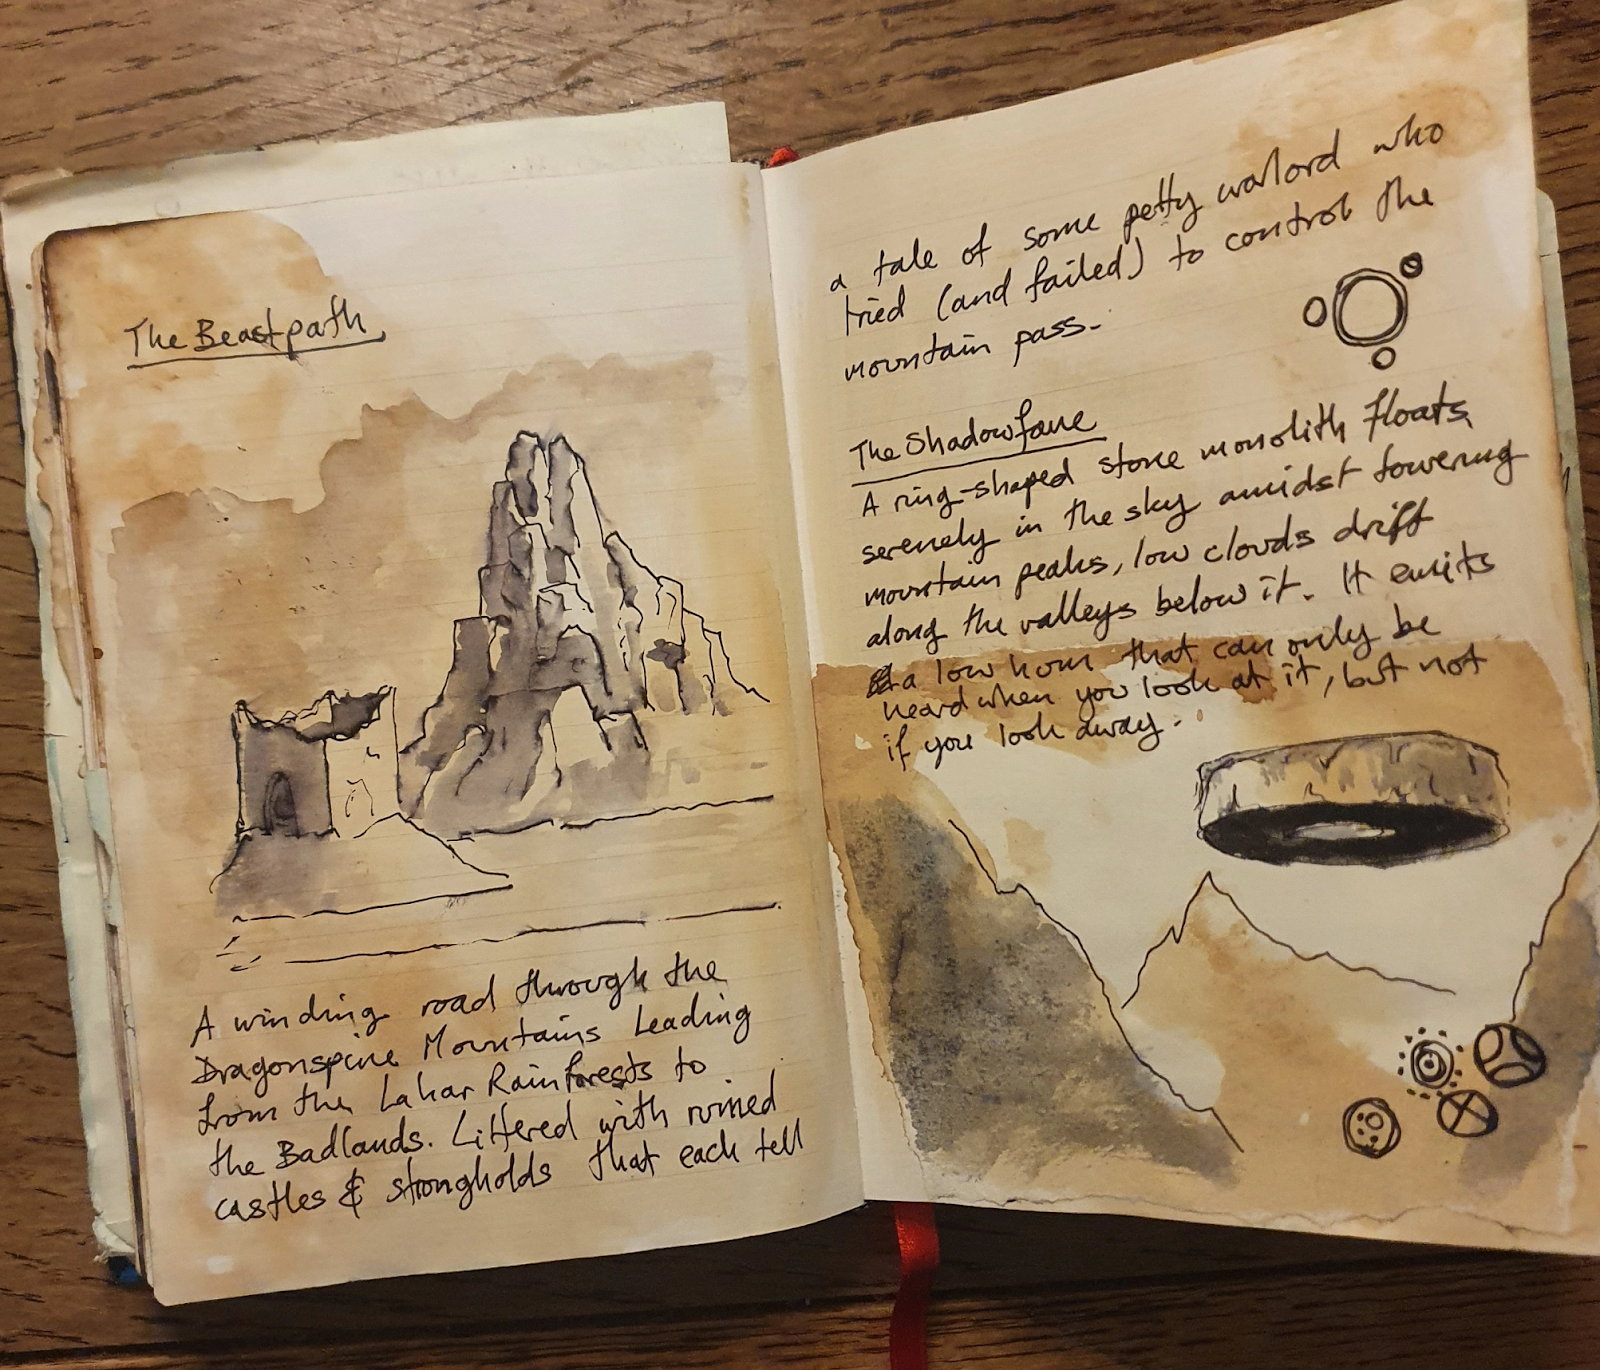 The Beastpath
A winding road through the
Dragonspine Mountains Leading
from the Lahar Rainforests to
the Badlands. Littered with ruined
castles & strongholds that each tell
a tale of some petty warlord who
tried (and failed) to control the
mountain pass.
The Shadowfane
A ring-shaped stone monolith floats
serenely in the sky amidst towering
mountain peaks, low clouds drift
along the valleys below it. It emits
a low hum that can only be
heard when you look at it, but not
if you look away.